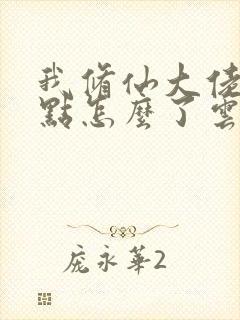 我脩仙大佬
點怎麼了雲
龐永華2